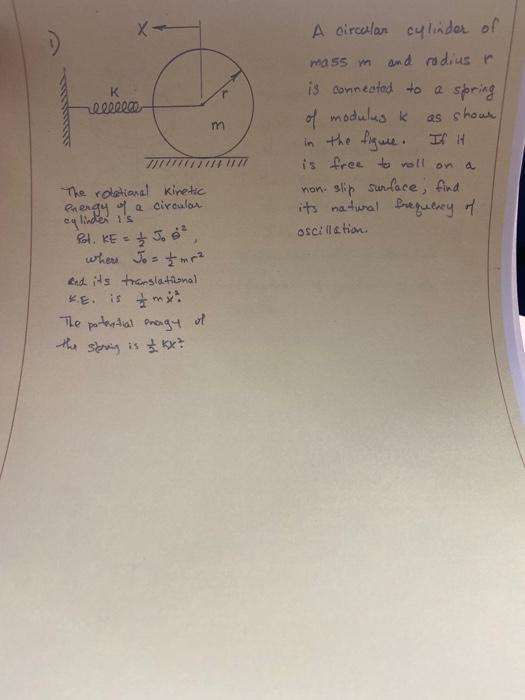 1)
X
K
r
m
A circular cylinder of
mass m and radius r
is connected to a spring
of modulus k as shown
in the figure. If it
is free to roll on a
non-slip surface, find
its natural frequency of
oscillation.
The rotational kinetic
energy of a circular
cylinder is
Rot. KE = ½ J₀ θ̇²,
where J₀ = ½ mr²
and its translational
K.E. is ½ mẋ².
The potential energy of
the spring is ½ Kx².